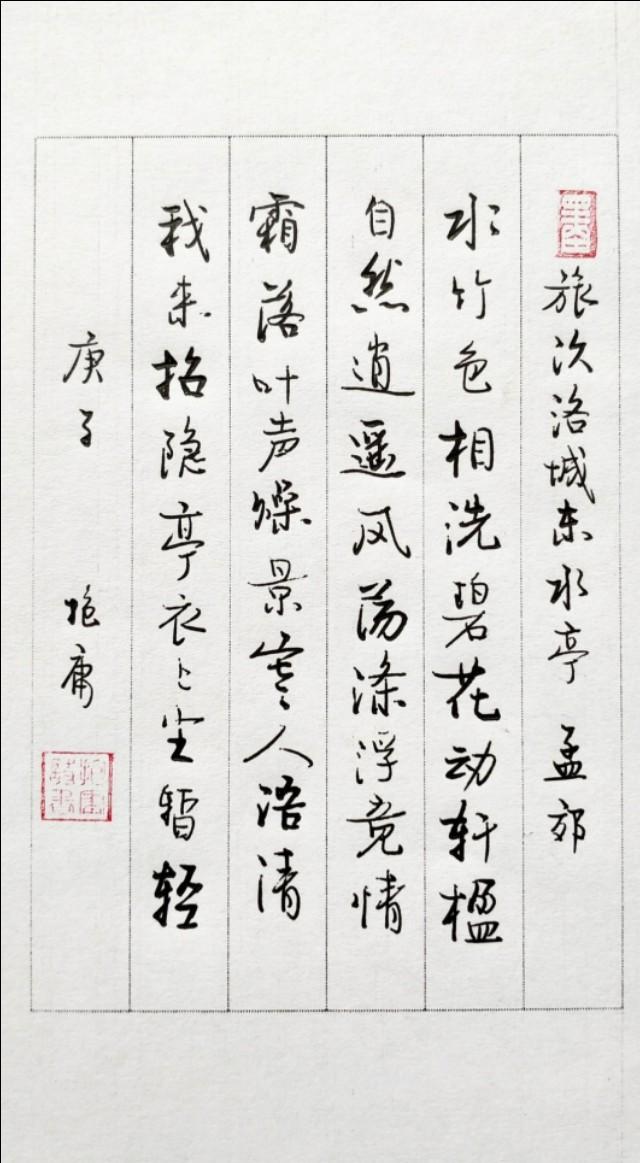 旅次洛城东水亭 孟郊
水竹色相洗碧花动轩楹
自然逍遥风荡涤浮竞情
霜落叶声燥景寒人语清
我来招隐亭衣上尘暂轻
庚子 抱庸